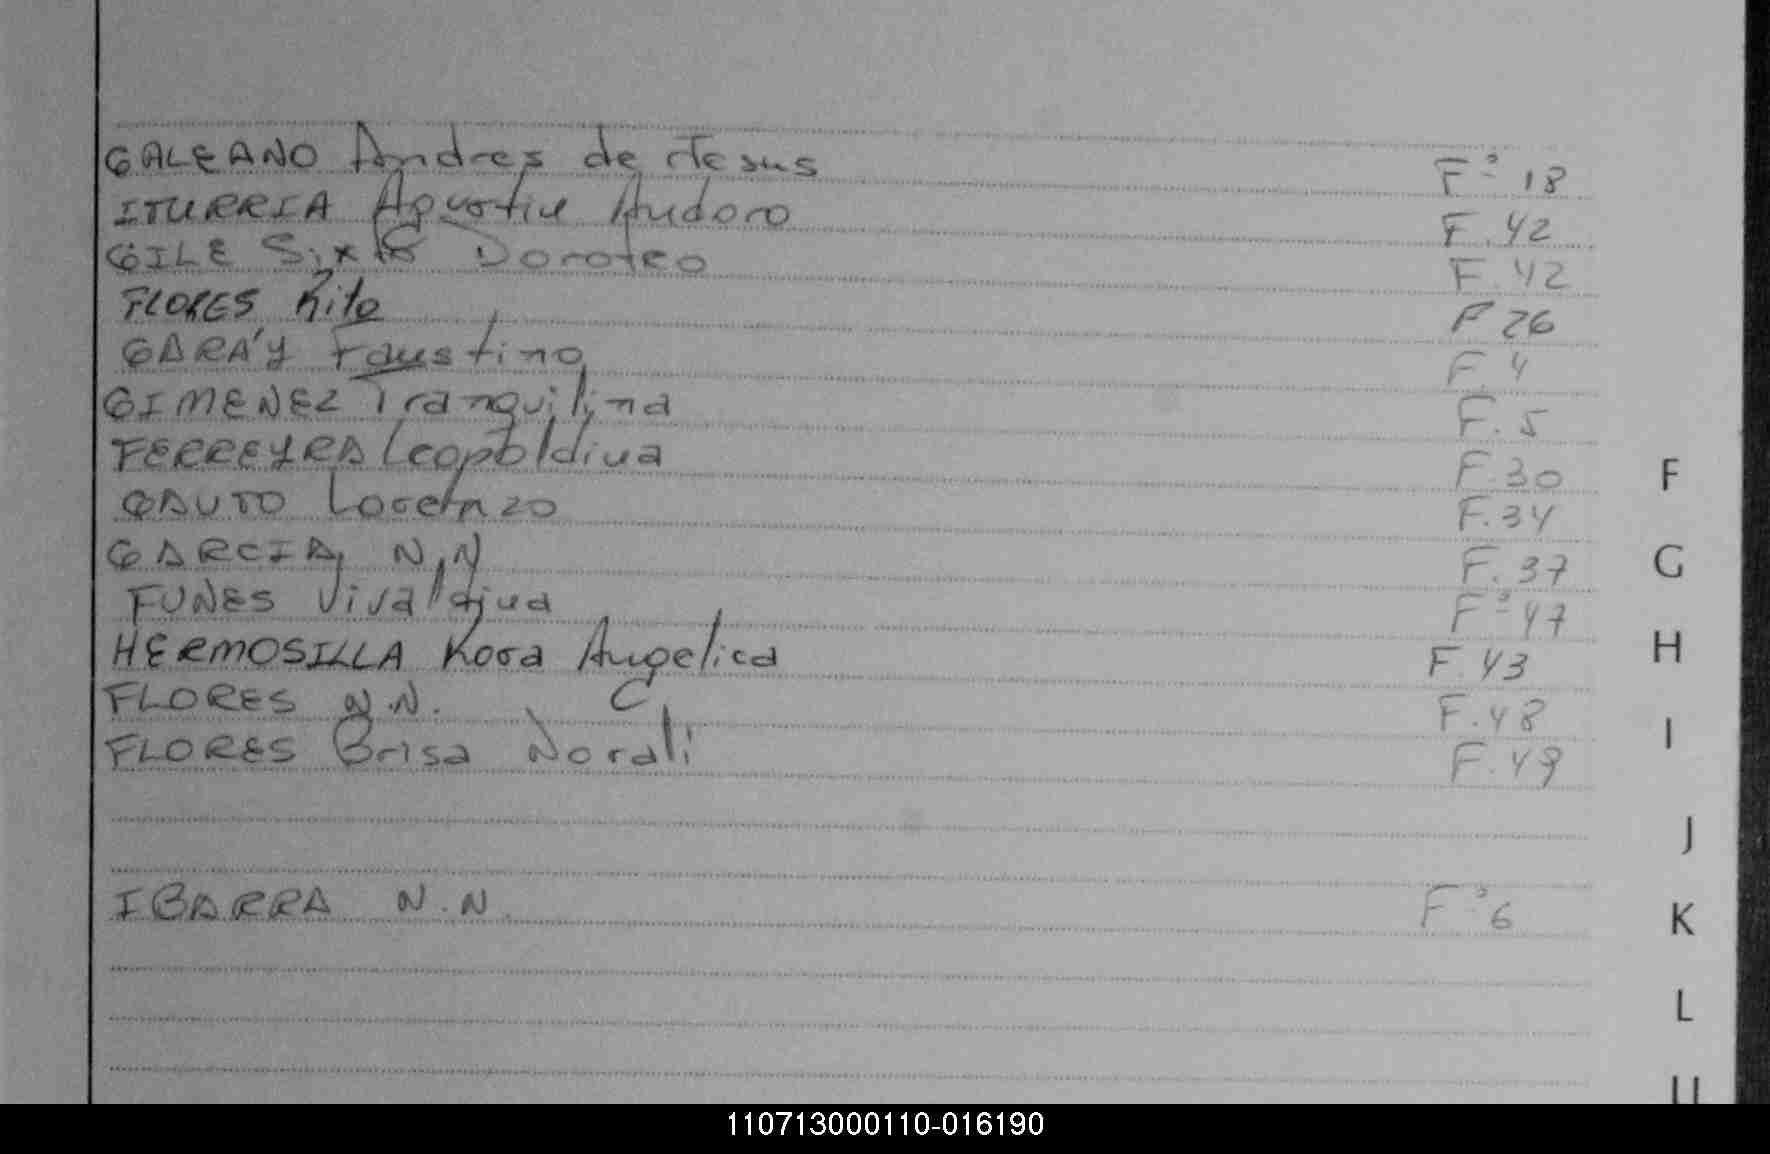 GALEANO Andres de Jesus F° 18
ITURRIA Agustin Audoro F. 42
GILE Sixto Doroteo F. 42
FLORES Rito F 26
GARA'Y Faustino F. 4
GIMENEZ Tranquilina F. 5
FERREYRA Leopoldina F. 30
GAUTO Lorenzo F. 34
GARCIA, N.N F. 37
FUNES Vivaldina F° 47
HERMOSILLA Rosa Angelica F. 43
FLORES N.N. F. 48
FLORES Brisa Norali F. 49
IBARRA N.N. F° 6
F
G
H
I
J
K
L
110713000110-016190